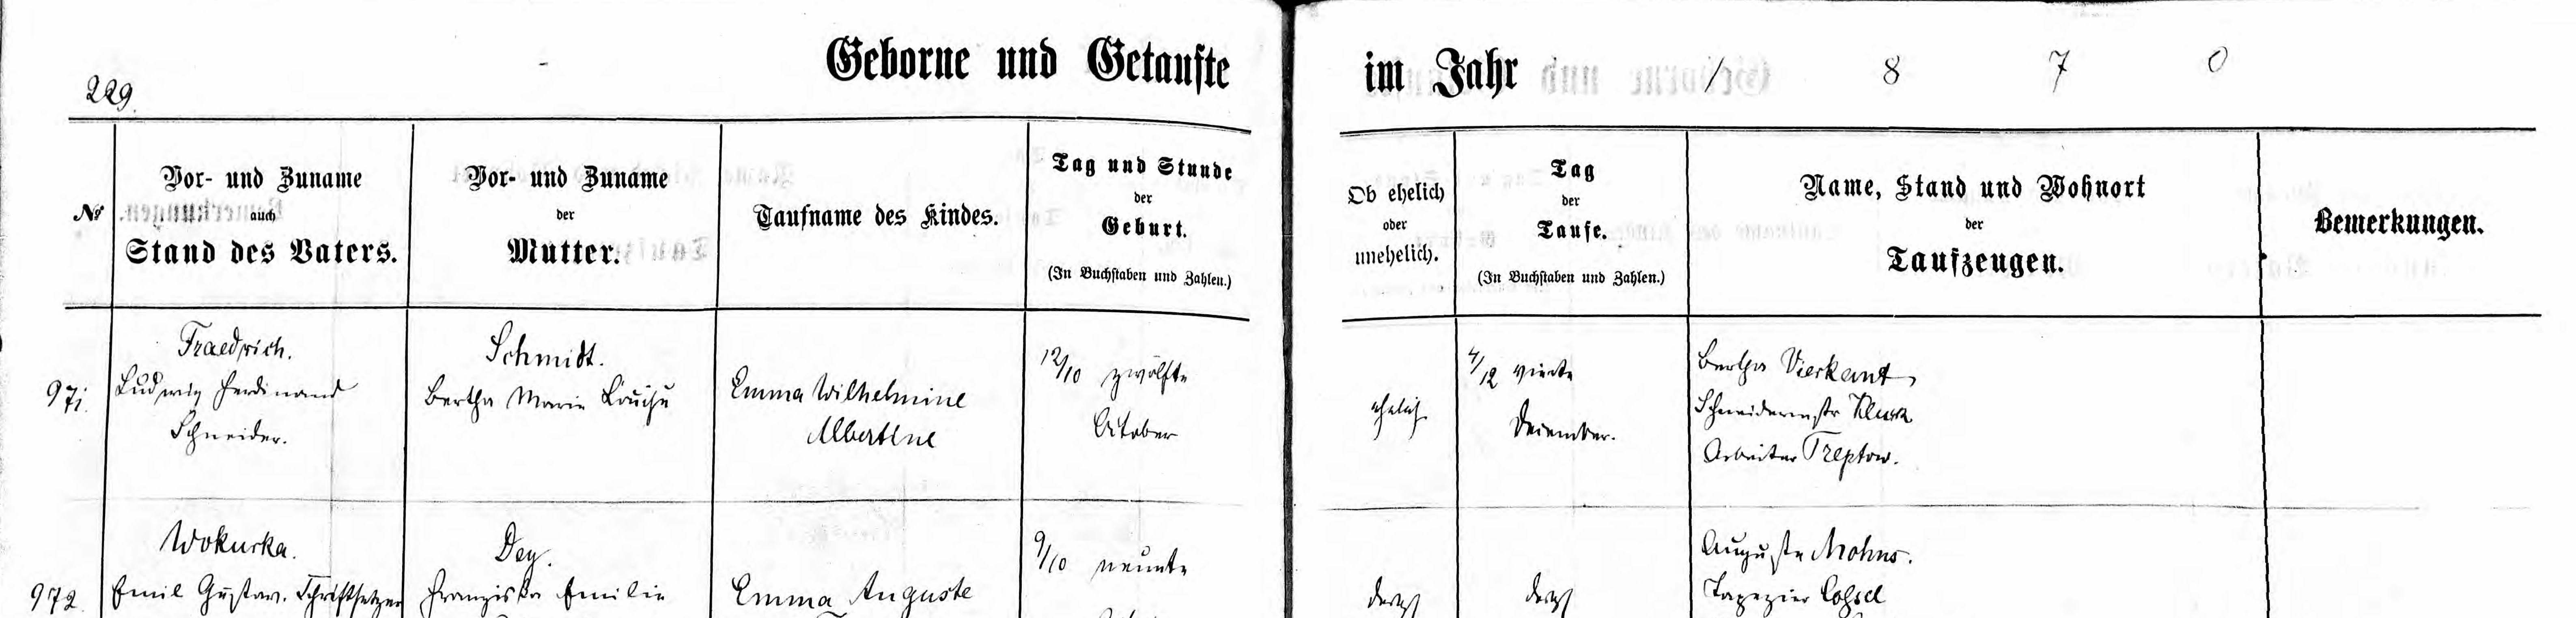 229.
Geborne und Getaufte im Jahr 1 8 7 0
No
Vor- und Zuname
auch
Stand des Vaters.
Vor- und Zuname
der
Mutter.
Taufname des Kindes.
Tag und Stunde
der
Geburt.
(In Buchstaben und Zahlen.)
Ob ehelich
oder
unehelich.
Tag
der
Taufe.
(In Buchstaben und Zahlen.)
Name, Stand und Wohnort
der
Taufzeugen.
Bemerkungen.
971.
Traedrich.
Ludwig Ferdinand
Schneider.
Schmidt.
Bertha Marie Louise
Emma Wilhelmine
Albertine
12/10 zwölfte
October
ehelich
4/12 vierte
December.
Bertha Vierkant
Schneidermstr
Arbeiter Treptow.
972.
Wokurka.
Emil Gustav. Schriftsetzer
Dey.
Franziska Emilie
Emma Auguste
9/10 neunte
desgl
desgl
Auguste Mohns.
Tapezier